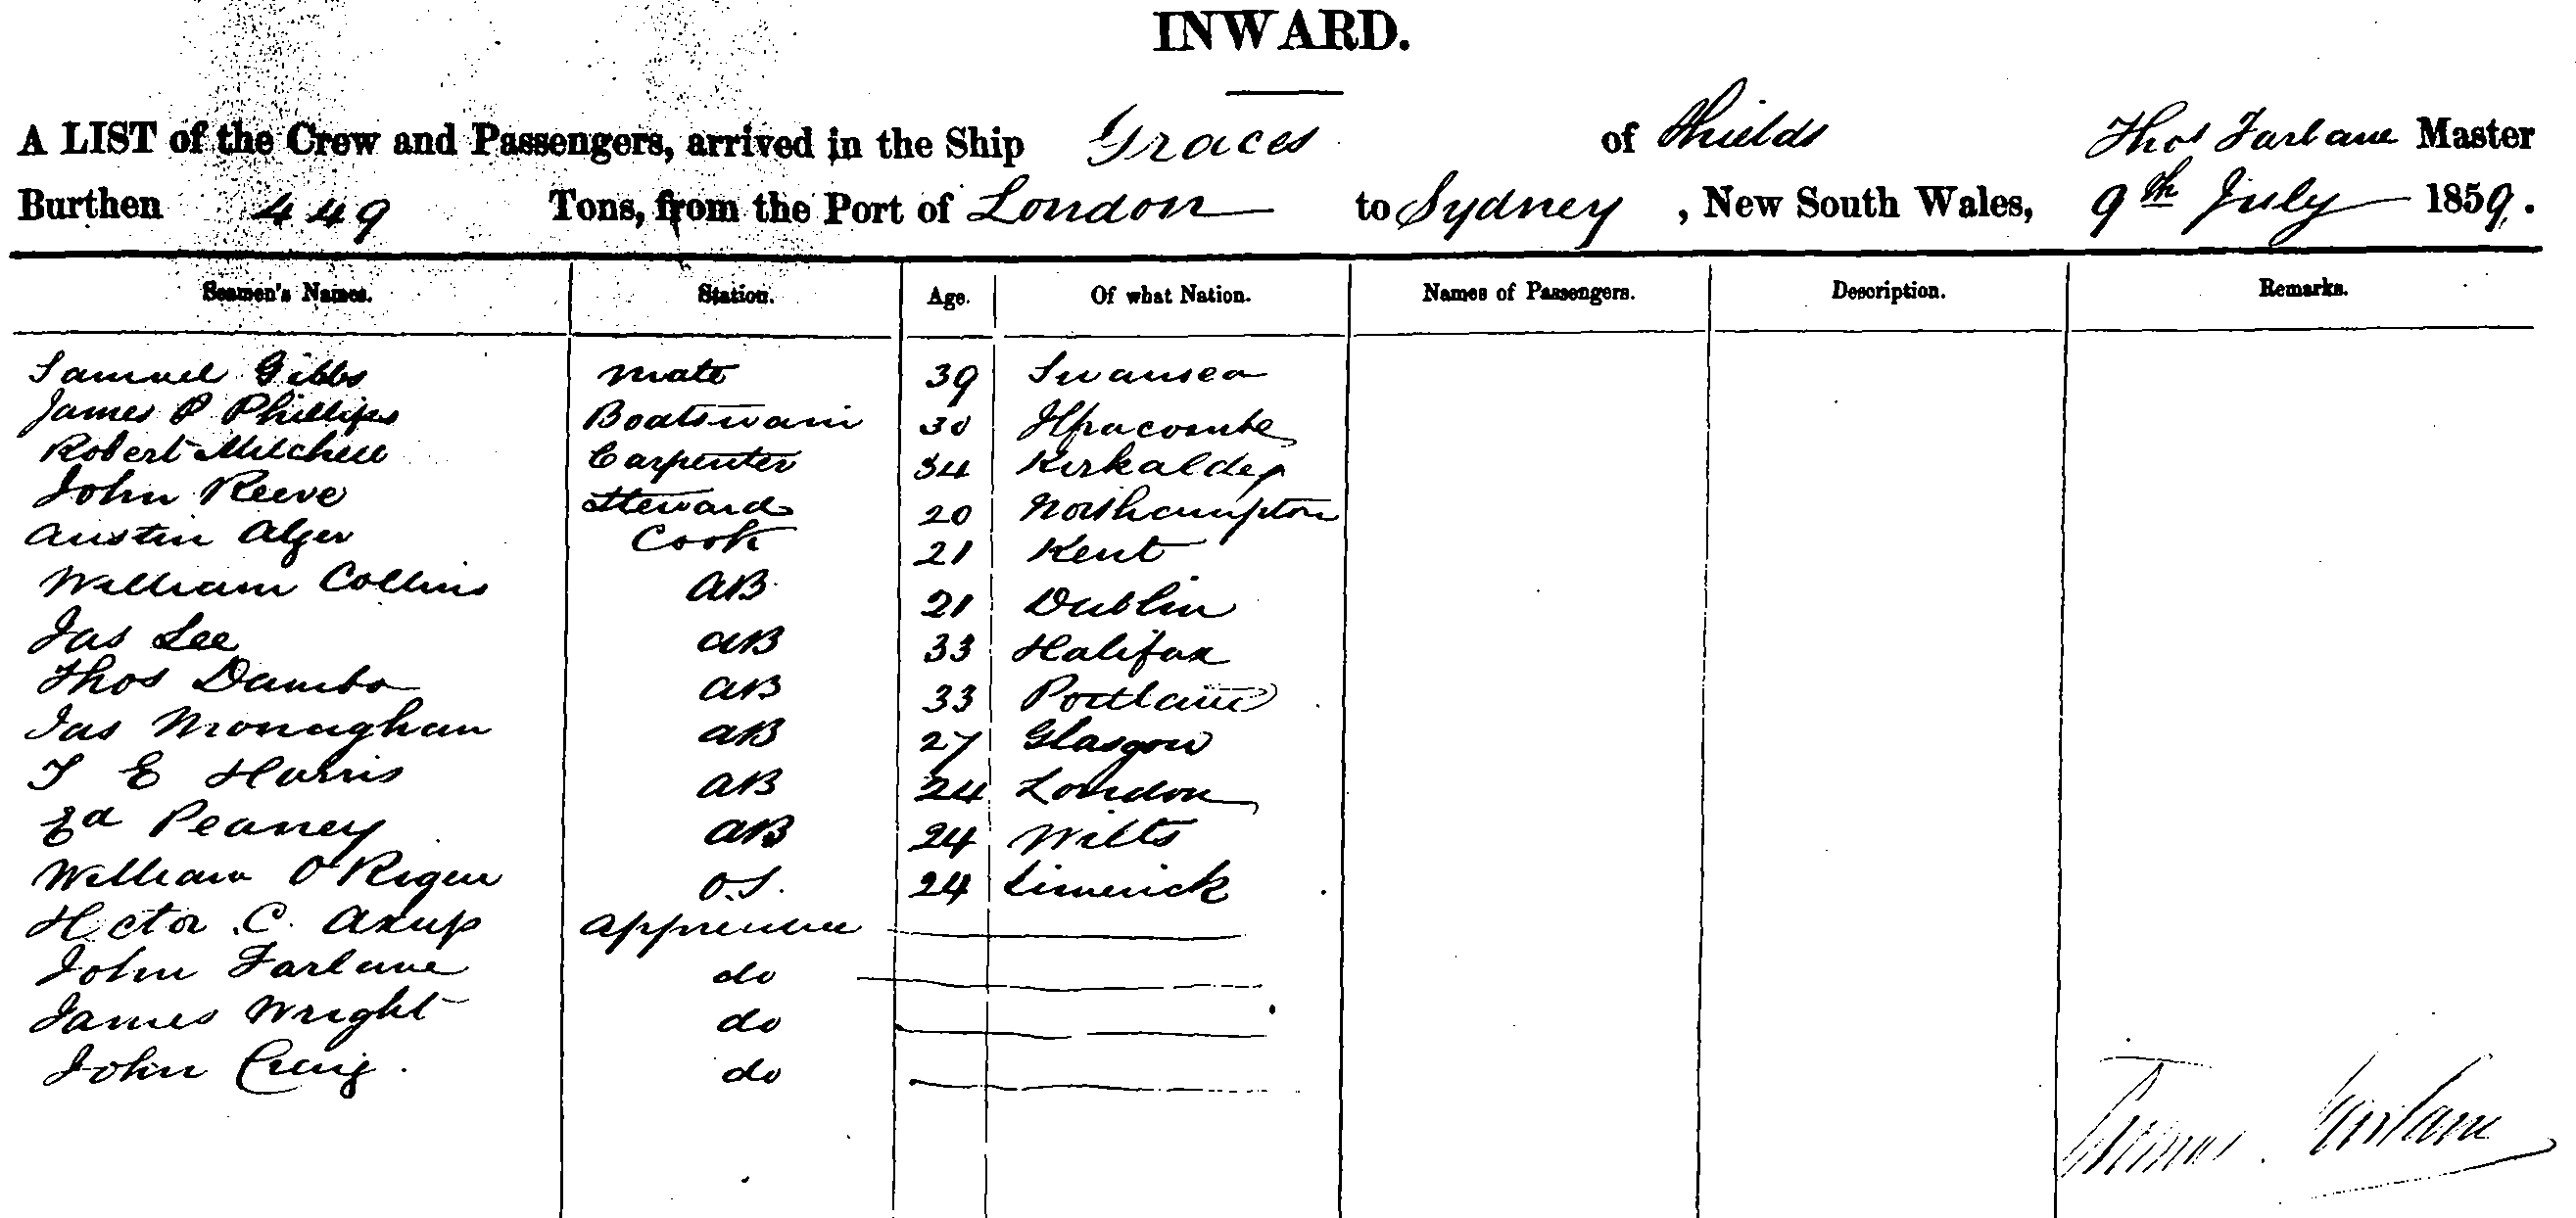 INWARD.
A LIST of the Crew and Passengers, arrived in the Ship Graces of Shields Thos Farlane Master
Burthen 449 Tons, from the Port of London to Sydney, New South Wales, 9th July 1859.
Seamen's Names. Station. Age. Of what Nation. Names of Passengers. Description. Remarks.
Samuel Gibbs Mate 39 Swansea
James P Phillips Boatswain 30 Ilfracombe
Robert Mitchell Carpenter 34 Kirkaldey
John Reeve Steward 20 Northampton
Austin Alger Cook 21 Kent
William Collins AB 21 Dublin
Jas Lee AB 33 Halifax
Thos Dambo AB 33 Portland
Jas Monaghan AB 27 Glasgow
T E Harris AB 24 London
Ed Peaney AB 24 Wilts
William O'Regan O.S. 24 Limerick
Hctor C. Axup Apprentice
John Farlane do
James Wright do
John Craig. do
Thomas Farlane